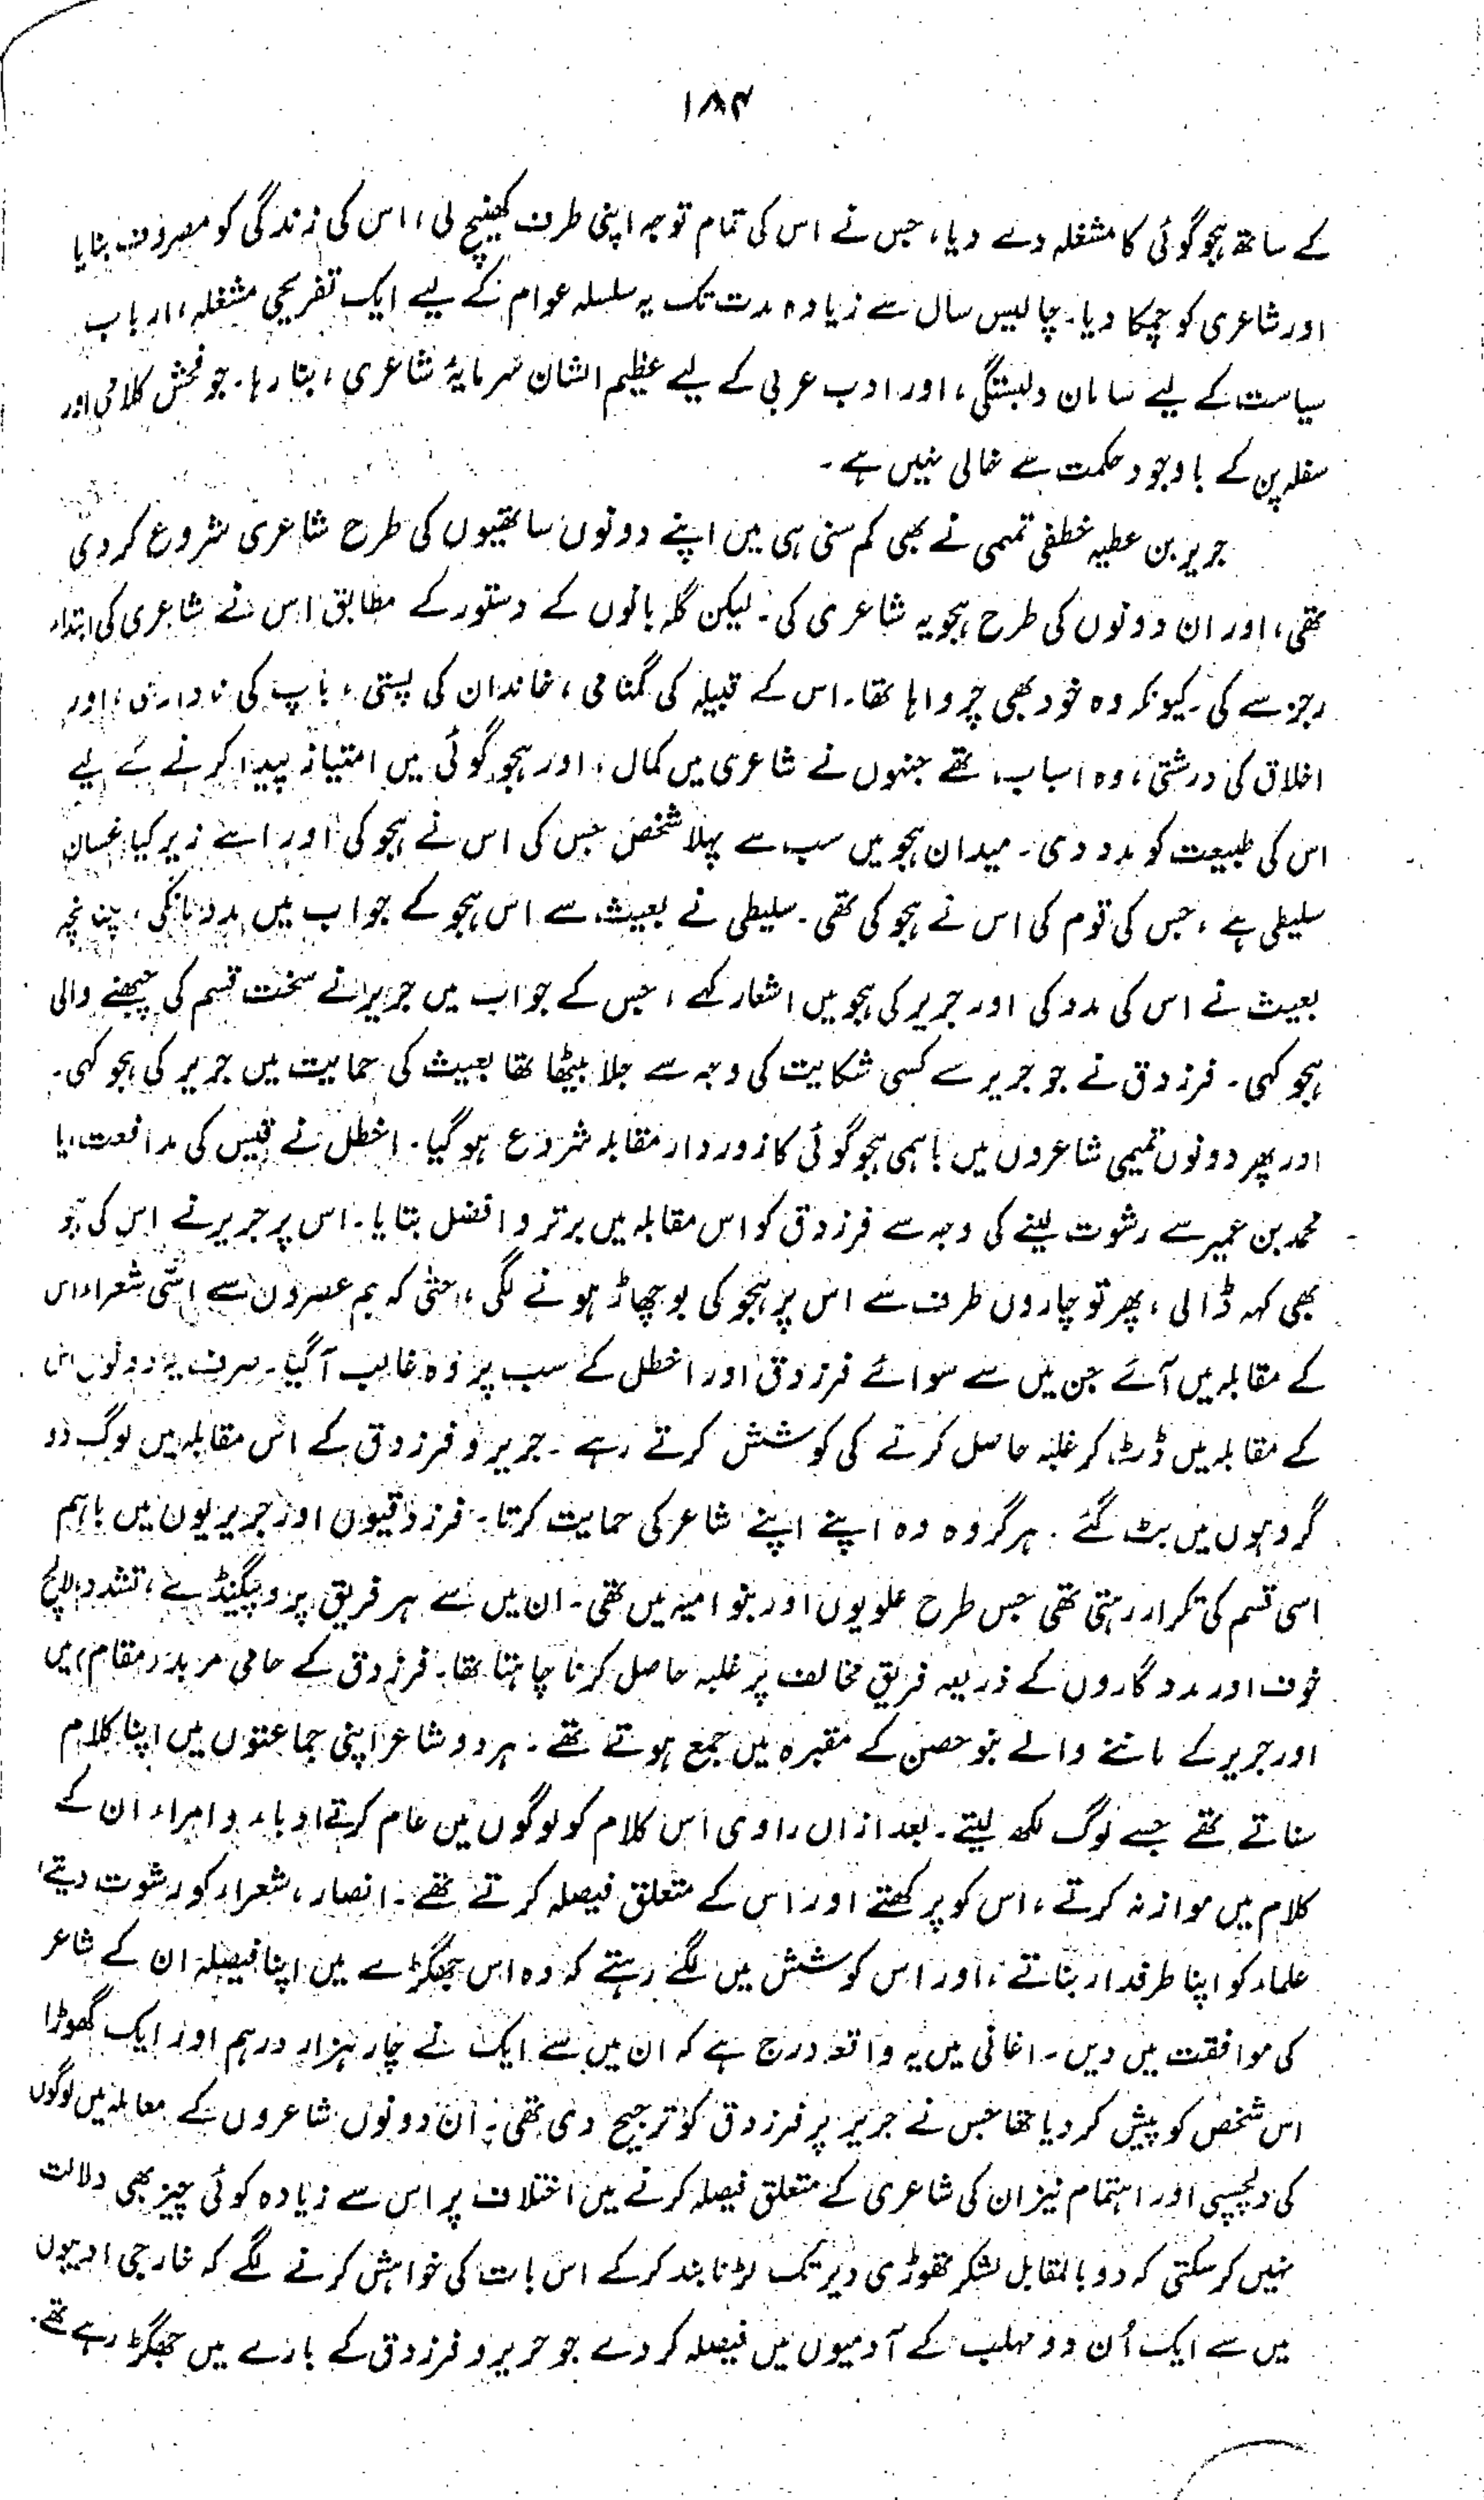 ۱۸۴
کے ساتھ ہجو گوئی کا مشغلہ دے دیا، جس نے اس کی تمام توجہ اپنی طرف کھینچ لی، اس کی زندگی کو مصروف بنایا
اور شاعری کو چمکا دیا۔ چالیس سال سے زیادہ مدت تک یہ سلسلہ عوام کے لیے ایک تفریحی مشغلہ، ارباب
سیاست کے لیے سامان دلبستگی، اور ادب عربی کے لیے عظیم الشان سرمایۂ شاعری، بنا رہا۔ جو فحش کلامی اور
سفلہ پن کے باوجود حکمت سے خالی نہیں ہے۔
جریر بن عطیہ خطفی تمیمی نے بھی کم سنی ہی میں اپنے دونوں ساتھیوں کی طرح شاعری شروع کردی
تھی، اور ان دونوں کی طرح ہجویہ شاعری کی۔ لیکن گلہ بانوں کے دستور کے مطابق اس نے شاعری کی ابتداء
رجز سے کی۔ کیونکہ وہ خود بھی چرواہا تھا۔ اس کے قبیلہ کی گمنامی، خاندان کی پستی، باپ کی ناداری، اور
اخلاق کی درشتی، وہ اسباب تھے جنہوں نے شاعری میں کمال، اور ہجو گوئی میں امتیاز پیدا کرنے کے لیے
اس کی طبیعت کو مدد دی۔ میدان ہجو میں سب سے پہلا شخص جس کی اس نے ہجو کی اور اسے زیر کیا، غسان
سلیطی ہے، جس کی قوم کی اس نے ہجو کی تھی۔ سلیطی نے بعیث سے اس ہجو کے جواب میں مدد مانگی، چنانچہ
بعیث نے اس کی مدد کی اور جریر کی ہجو میں اشعار کہے، جس کے جواب میں جریر نے سخت قسم کی چبھنے والی
ہجو کہی۔ فرزدق نے جو جریر سے کسی شکایت کی وجہ سے جلا بیٹھا تھا بعیث کی حمایت میں جریر کی ہجو کہی۔
اور پھر دونوں تمیمی شاعروں میں باہمی ہجو گوئی کا زور دار مقابلہ شروع ہو گیا۔ اخطل نے قیس کی مدافعت، یا
محمد بن عمیر سے رشوت لینے کی وجہ سے فرزدق کو اس مقابلہ میں برتر و افضل بتایا۔ اس پر جریر نے اس کی ہجو
بھی کہہ ڈالی، پھر تو چاروں طرف سے اس پر ہجو کی بوچھاڑ ہونے لگی، حتٰی کہ ہم عصروں سے اسّی شعراء اس
کے مقابلہ میں آئے جن میں سے سوائے فرزدق اور اخطل کے سب پر وہ غالب آگیا۔ صرف یہ دونوں اس
کے مقابلہ میں ڈٹ کر غلبہ حاصل کرنے کی کوشش کرتے رہے۔ جریر و فرزدق کے اس مقابلہ میں لوگ دو
گروہوں میں بٹ گئے۔ ہر گروہ وہ اپنے اپنے شاعر کی حمایت کرتا۔ فرزدقیوں اور جریریوں میں باہم
اسی قسم کی تکرار رہتی تھی جس طرح علویوں اور بنو امیہ میں تھی۔ ان میں سے ہر فریق پروپیگنڈے، تشدد، لالچ
خوف اور مدد گاروں کے ذریعہ فریق مخالف پر غلبہ حاصل کرنا چاہتا تھا۔ فرزدق کے حامی مربد (مقام) میں
اور جریر کے ماننے والے بنو حصن کے مقبرہ میں جمع ہوتے تھے۔ ہر دو شاعر اپنی جماعتوں میں اپنا کلام
سناتے تھے جسے لوگ لکھ لیتے۔ بعد ازاں راوی اس کلام کو لوگوں میں عام کرتے ادباء و امراء ان کے
کلام میں موازنہ کرتے، اس کو پرکھتے اور اس کے متعلق فیصلہ کرتے تھے۔ انصار، شعراء کو رشوت دیتے،
علماء کو اپنا طرفدار بناتے، اور اس کوشش میں لگے رہتے کہ وہ اس جھگڑے میں اپنا فیصلہ ان کے شاعر
کی موافقت میں دیں۔ اغانی میں یہ واقعہ درج ہے کہ ان میں سے ایک نے چار ہزار درہم اور ایک گھوڑا
اس شخص کو پیش کر دیا تھا جس نے جریر پر فرزدق کو ترجیح دی تھی۔ ان دونوں شاعروں کے معاملہ میں لوگوں
کی دلچسپی اور اہتمام نیز ان کی شاعری کے متعلق فیصلہ کرنے میں اختلاف پر اس سے زیادہ کوئی چیز بھی دلالت
نہیں کر سکتی کہ دو بالمقابل لشکر تھوڑی دیر تک لڑنا بند کرکے اس بات کی خواہش کرنے لگے کہ خارجی ادیبوں
میں سے ایک اُن دو مہلب کے آدمیوں میں فیصلہ کر دے جو جریر و فرزدق کے بارے میں جھگڑ رہے تھے۔